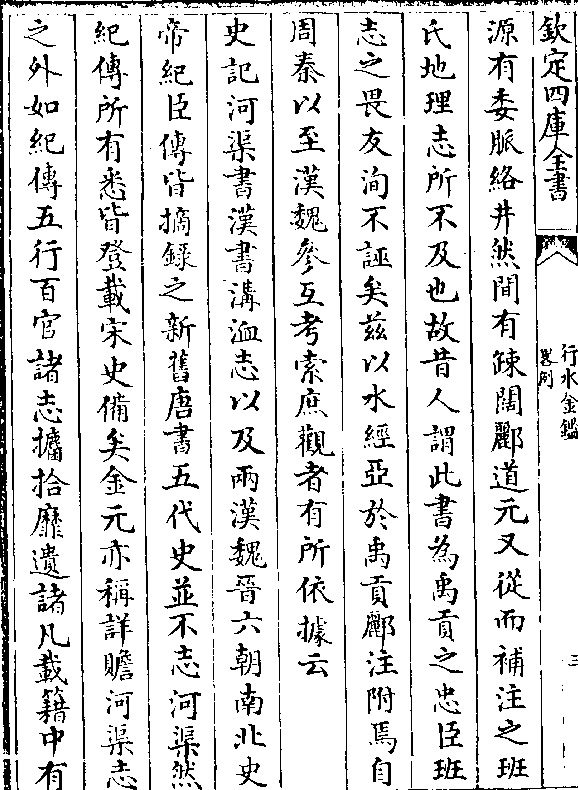 欽定四庫全書
行水金鑑
畧例
三
源有委脈絡井然間有疎闊酈道元又從而補注之班
氏地理志所不及也故昔人謂此書為禹貢之忠臣班
志之畏友洵不誣矣兹以水經亞於禹貢酈注附焉自
周秦以至漢魏參互考索庶觀者有所依據云
史記河渠書漢書溝洫志以及兩漢魏晉六朝南北史
帝紀臣傳皆摘錄之新舊唐書五代史並不志河渠然
紀傳所有悉皆登載宋史備矣金元亦稱詳贍河渠志
之外如紀傳五行百官諸志攟拾靡遺諸凡載籍中有